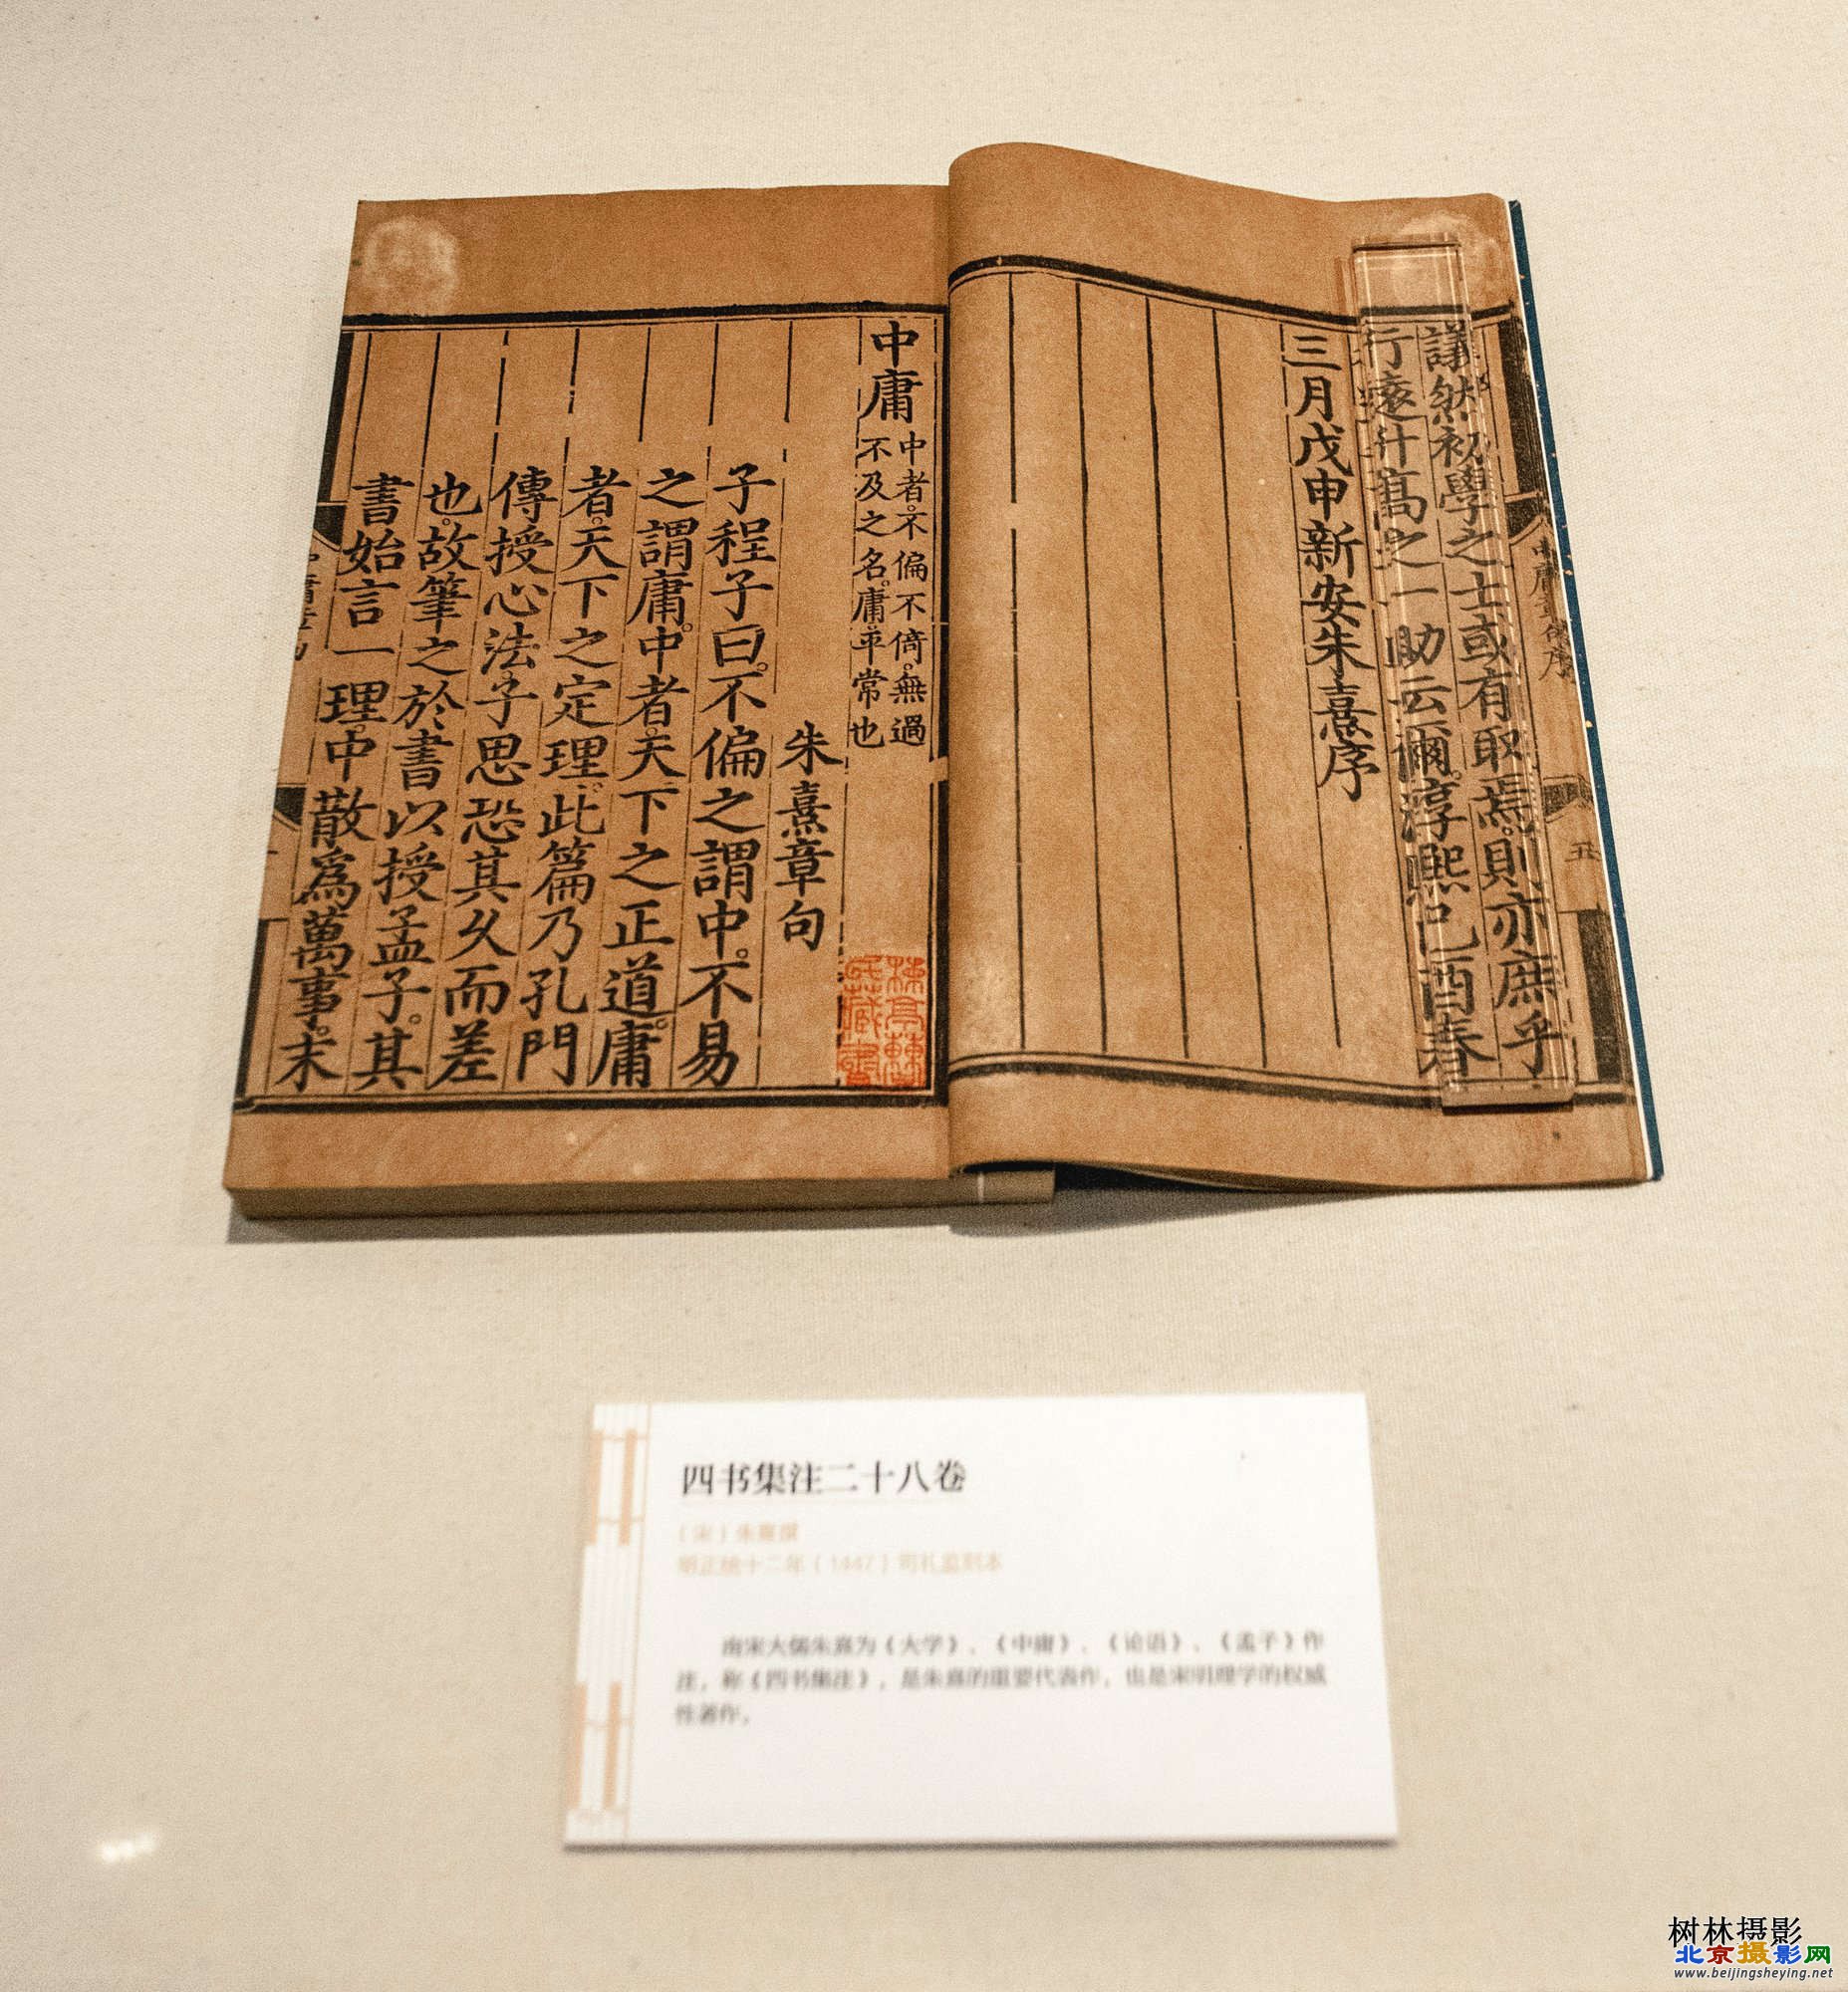 議然初學之士或有取焉則亦庶乎
行遠升高之一助云爾淳熙己酉春
三月戊申新安朱熹序
五
中庸
中者不偏不倚無過
不及之名庸平常也
朱熹章句
子程子曰不偏之謂中不易
之謂庸中者天下之正道庸
者天下之定理此篇乃孔門
傳授心法子思恐其久而差
也故筆之於書以授孟子其
書始言一理中散爲萬事末
四书集注二十八卷
（宋）朱熹撰
明正统十二年（1447）司礼监刻本
南宋大儒朱熹为《大学》、《中庸》、《论语》、《孟子》作
注，称《四书集注》，是朱熹的重要代表作，也是宋明理学的权威
性著作。
树林摄影
北京摄影网
www.beijingsheying.net